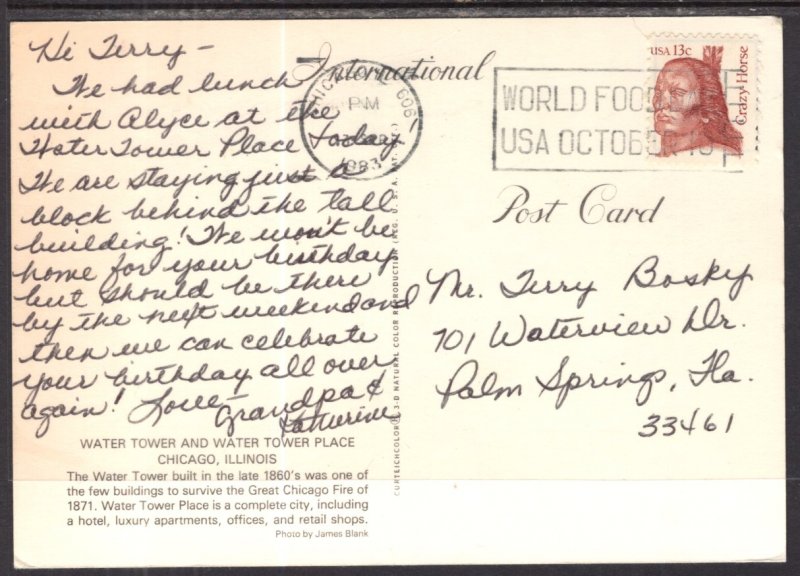 Hi Terry –
We had lunch
with Alyce at the
Water Tower Place today
We are staying just a
block behind the tall
building! We won't be
home for your birthday
but should be there
by the next weekend and
then we can celebrate
your birthday all over
again! Love –
Grandpa &
Katherine
WATER TOWER AND WATER TOWER PLACE
CHICAGO, ILLINOIS
The Water Tower built in the late 1860's was one of
the few buildings to survive the Great Chicago Fire of
1871. Water Tower Place is a complete city, including
a hotel, luxury apartments, offices, and retail shops.
Photo by James Blank
CURTEICHCOLOR® 3-D NATURAL COLOR REPRODUCTION (REG. U.S.A. PAT. OFF.)
International
Post Card
CHICAGO, IL 606
PM
1983
WORLD FOOD
USA OCTOBER 16
USA 13c
Crazy Horse
Mr. Terry Bosky
701 Waterview Dr.
Palm Springs, Fla.
33461